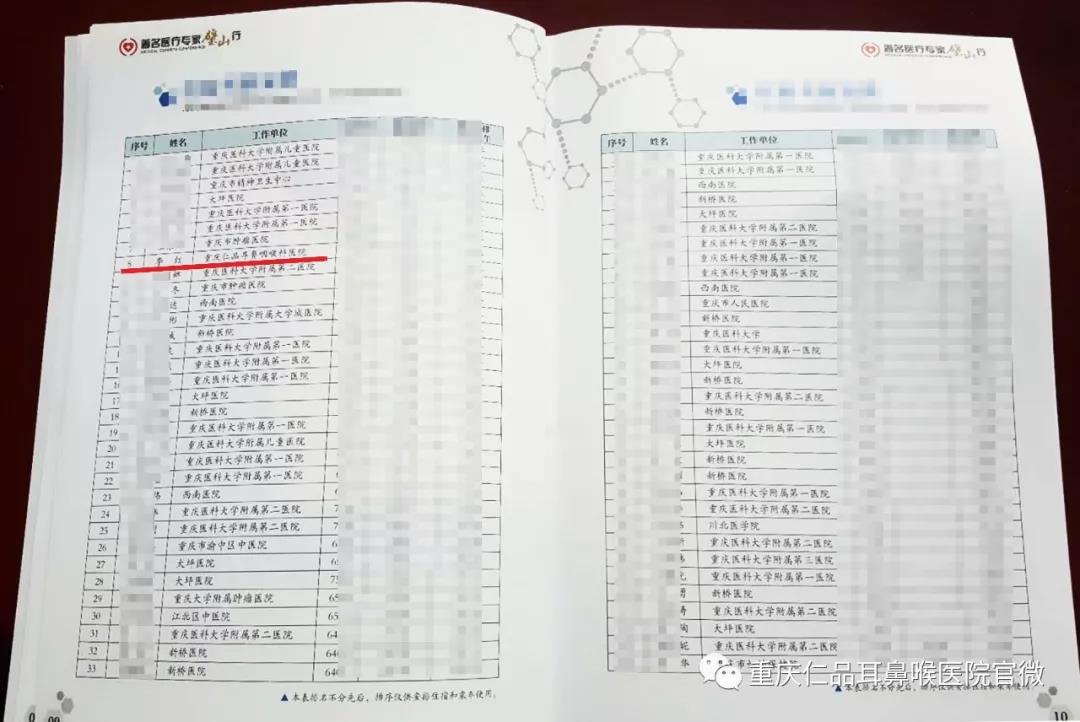 著名医疗专家璧山行
序号 姓名 工作单位
重庆医科大学附属儿童医院
重庆医科大学附属儿童医院
重庆市精神卫生中心
大坪医院
重庆医科大学附属第一医院
重庆医科大学附属第一医院
重庆市肿瘤医院
8 李 红 重庆仁品耳鼻咽喉科医院
重庆医科大学附属第二医院
重庆市肿瘤医院
达 西南医院
彬 重庆医科大学附属大学城医院
新桥医院
重庆医科大学附属第一医院
重庆医科大学附属第一医院
16 重庆医科大学附属第一医院
17 大坪医院
18 新桥医院
19 重庆医科大学附属第一医院
20 重庆医科大学附属儿童医院
21 重庆医科大学附属第一医院
22 重庆医科大学附属第一医院
23 西南医院
24 重庆医科大学附属第二医院
25 重庆医科大学附属第二医院
26 重庆市渝中区中医院
27 大坪医院
28 大坪医院
29 重庆大学附属肿瘤医院 65
30 江北区中医院 65
31 重庆医科大学附属第二医院 64
32 新桥医院 64
33 新桥医院 64
▲本表排名不分先后，排序仅供安排住宿和乘车使用。
著名医疗专家璧山行
序号 姓名 工作单位
重庆医科大学附属第一医院
重庆医科大学附属第一医院
西南医院
新桥医院
大坪医院
重庆医科大学附属第二医院
重庆医科大学附属第一医院
重庆医科大学附属第一医院
重庆医科大学附属第一医院
西南医院
重庆市人民医院
新桥医院
重庆医科大学
重庆医科大学附属第一医院
大坪医院
新桥医院
重庆医科大学附属第二医院
新桥医院
重庆医科大学附属第一医院
大坪医院
新桥医院
新桥医院
重庆医科大学附属第一医院
重庆医科大学附属第二医院
川北医学院
重庆医科大学附属第二医院
重庆医科大学附属第三医院
重庆医科大学附属第一医院
新桥医院
涛 重庆医科大学附属第二医院
陶 大坪医院
妮 重庆医科大学附属第二医院
华
▲本表排名不分先后，排序仅供安排住宿和乘车使用。
10
重庆仁品耳鼻喉医院官微